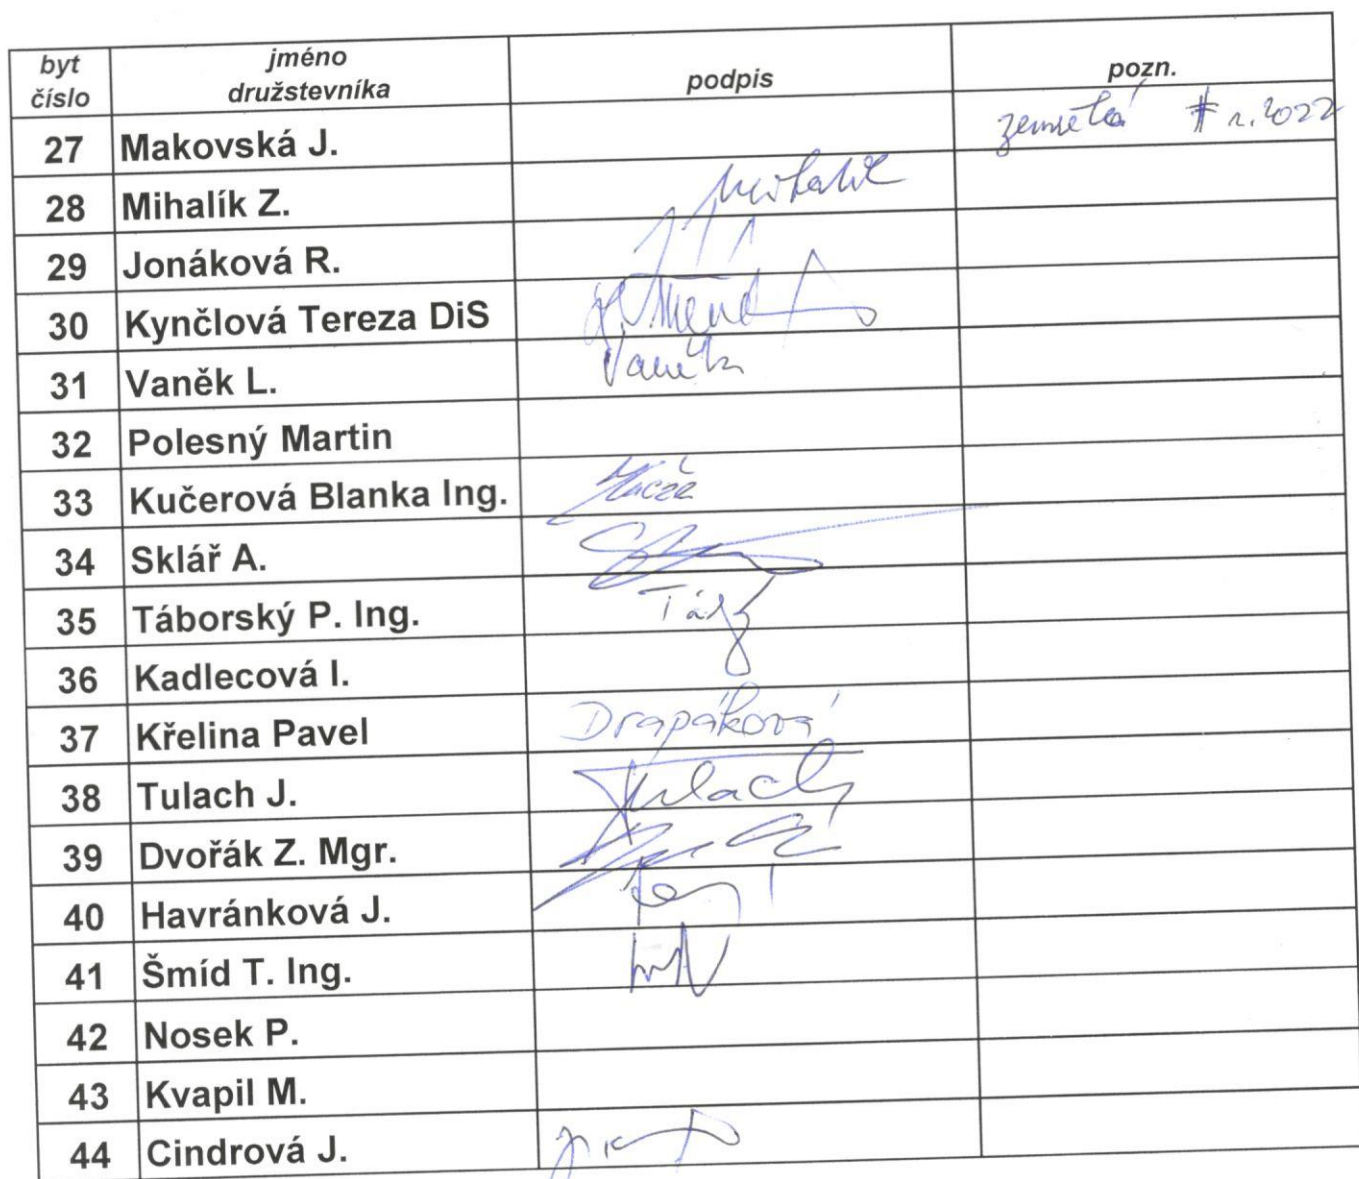 byt číslo jméno družstevníka podpis pozn.
27 Makovská J. zemřelá r. 2022
28 Mihalík Z. Mihalík
29 Jonáková R.
30 Kynčlová Tereza DiS
31 Vaněk L. Vaněk
32 Polesný Martin
33 Kučerová Blanka Ing.
34 Sklář A.
35 Táborský P. Ing.
36 Kadlecová I.
37 Křelina Pavel Drapáková
38 Tulach J. Tulach
39 Dvořák Z. Mgr.
40 Havránková J.
41 Šmíd T. Ing.
42 Nosek P.
43 Kvapil M.
44 Cindrová J.